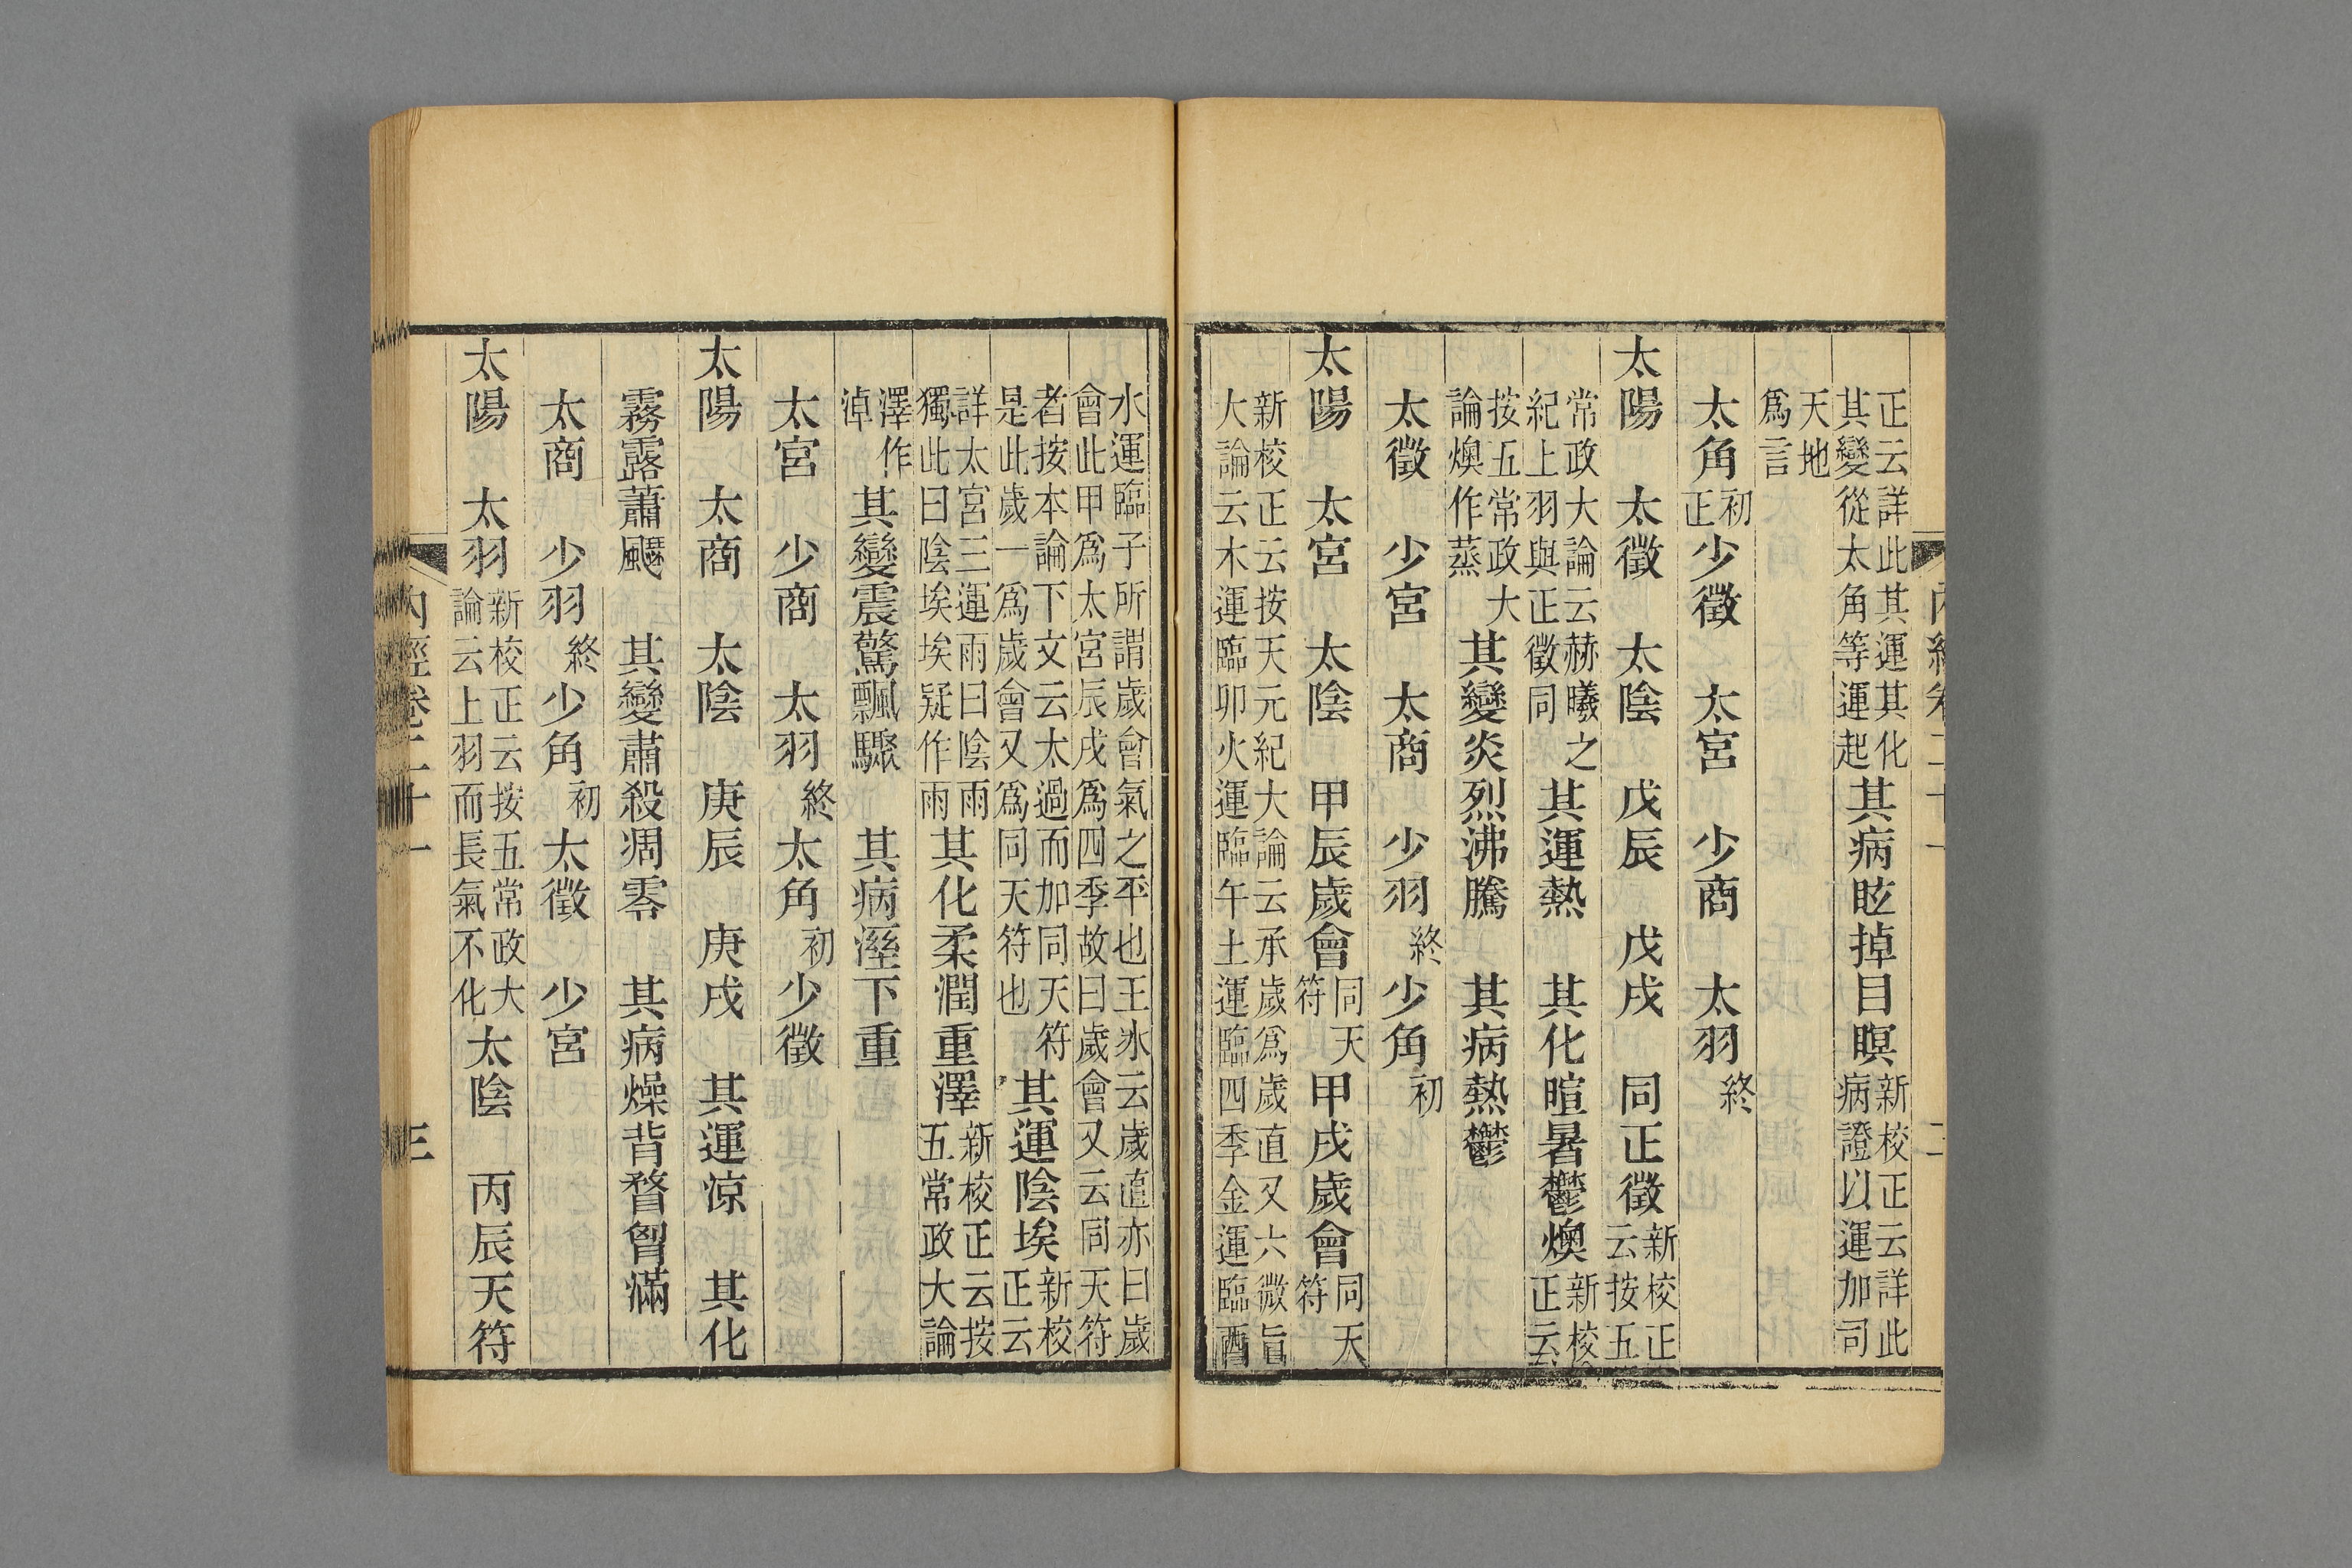 正云詳此其運其化
其變從太角等運起
其病眩掉目瞑
新校正云詳此
病證以運加司
天地
爲言
太角初正 少徵 太宮 少商 太羽終
太陽 太徵 太陰 戊辰 戊戌 同正徵
新校正
云按五
常政大論云赫曦之
紀上羽與正徵同
其運熱 其化暄暑鬱燠
新校
正云
按五常政大
論燠作蒸
其變炎烈沸騰 其病熱鬱
太徵 少宮 太商 少羽終 少角初
太陽 太宮 太陰 甲辰歲會同天符 甲戌歲會同天符
新校正云按天元紀大論云承歲爲歲直又六微旨
大論云木運臨卯火運臨午土運臨四季金運臨酉
水運臨子所謂歲會氣之平也王冰云歲直亦曰歲
會此甲爲太宮辰戌爲四季故曰歲會又云同天符
者按本論下文云太過而加同天符
是此歲一爲歲會又爲同天符也
其運陰埃
新校
正云
詳太宮三運雨曰陰雨
獨此曰陰埃埃疑作雨
其化柔潤重澤
新校正云按
五常政大論
澤作
淖
其變震驚飄驟 其病溼下重
太宮 少商 太羽終 太角初 少徵
太陽 太商 太陰 庚辰 庚戌 其運涼 其化
霧露蕭飋 其變肅殺凋零 其病燥背瞀胷滿
太商 少羽終 少角初 太徵 少宮
太陽 太羽
新校正云按五常政大
論云上羽而長氣不化
太陰 丙辰天符
內經卷二十一 三